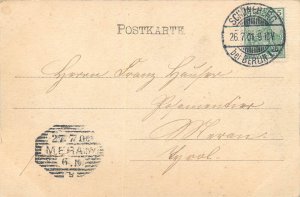 POSTKARTE
SCHÖNEBERG
26.7.01. 9-10V
bei BERLIN
Herrn Franz Häuser
Posamentier
Meran
Tyrol.
27 7 00
MERAN
6.N